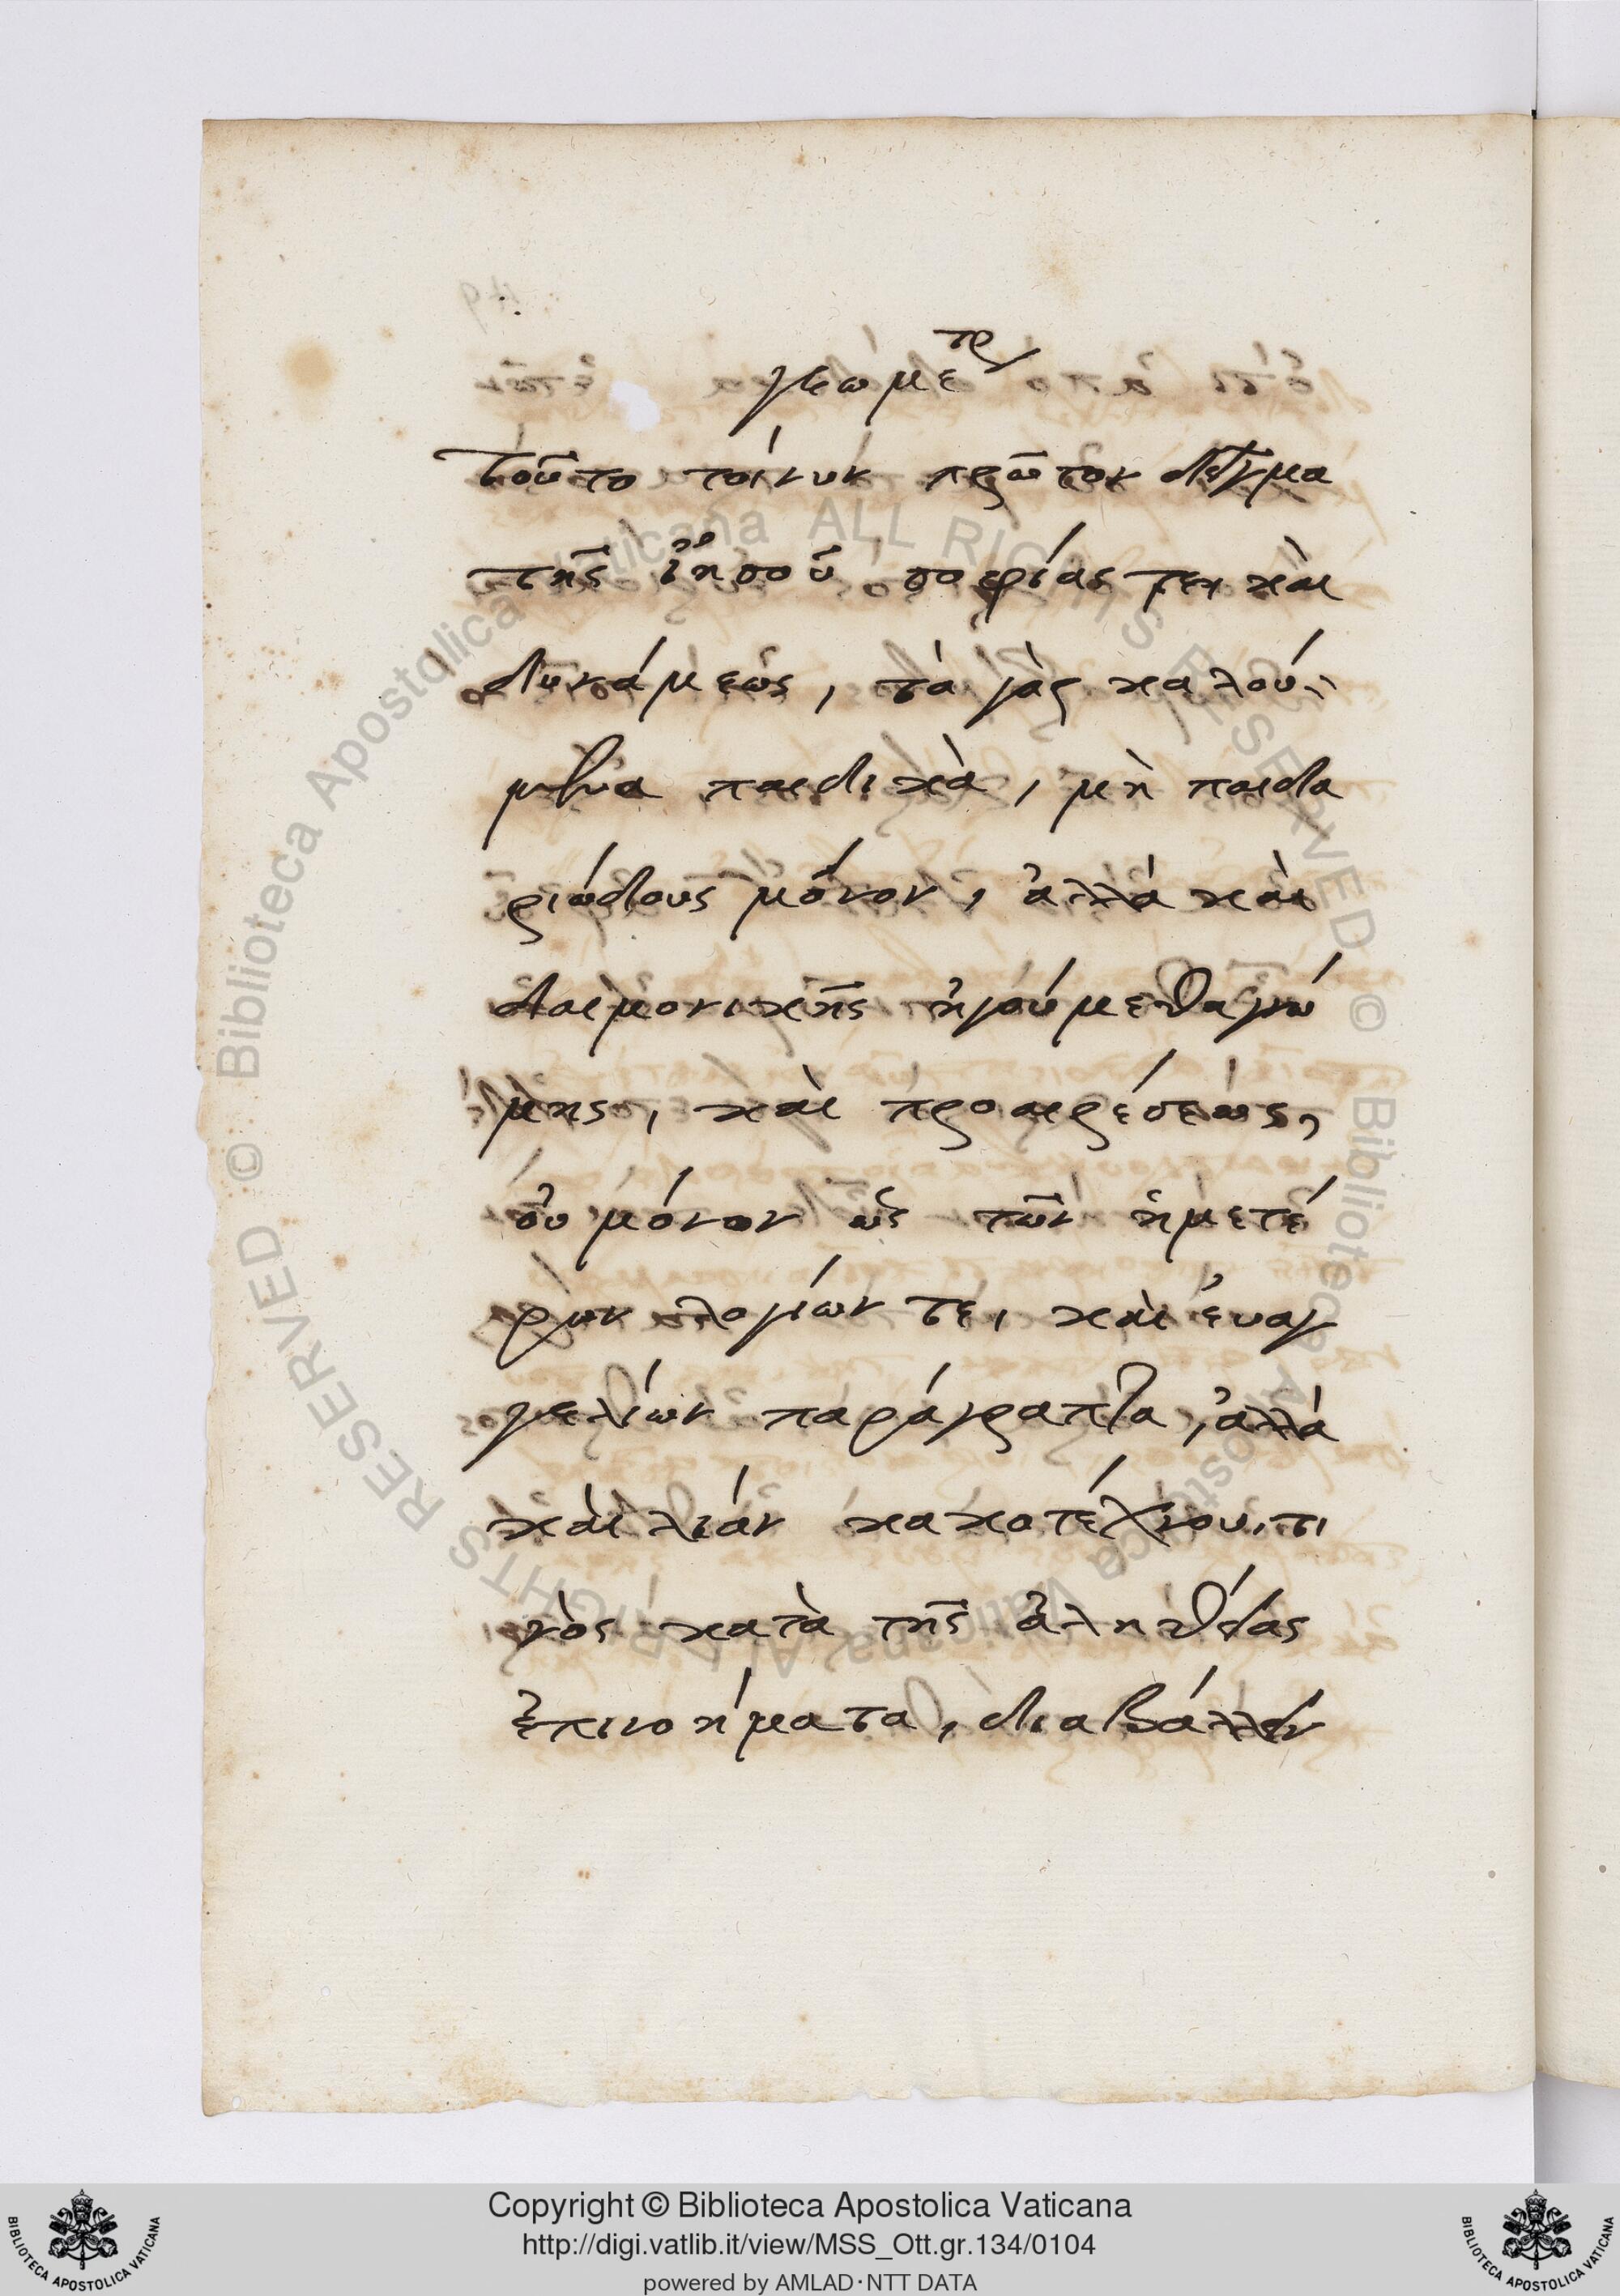 γεωμετρ
Τοῦτο τοίνυν πρῶτον δεῖγμα
τῆς ἰησοῦ σοφίας τε, καὶ
δυνάμεως, τὰ γὰρ καλού-
μενα παιδικὰ, μὴ παιδα
ριώδους μόνον, ἀλλὰ καὶ
δαιμονικῆς ἡγούμεθα γνώ
μης, καὶ προαιρέσεως,
οὐ μόνον ὡς τῶν ἡμετέ
ρων λογίων τε, καὶ ἐυαγ
γελίων παράγραπτα, ἀλλὰ
καὶ λιάν κακοτέχνου, τι
νὸς κατὰ τῆς ἀληθείας
ἐπινοήματα, διαβάλλειν
Copyright © Biblioteca Apostolica Vaticana
http://digi.vatlib.it/view/MSS_Ott.gr.134/0104
powered by AMLAD·NTT DATA
BIBLIOTECA APOSTOLICA VATICANA
BIBLIOTECA APOSTOLICA VATICANA
© Biblioteca Apostolica Vaticana ALL RIGHTS RESERVED
© Biblioteca Apostolica Vaticana ALL RIGHTS RESERVED